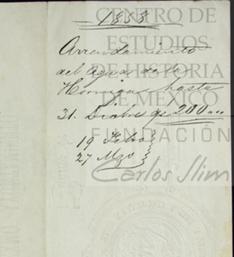 1883
CENTRO DE
ESTUDIOS
DE HISTORIA
DE MÉXICO
FUNDACIÓN
Carlos Slim
Arrendamiento
del agua de la
Hormiga hasta
31. Dicbre de 200...
19 Febo
27 Mzo